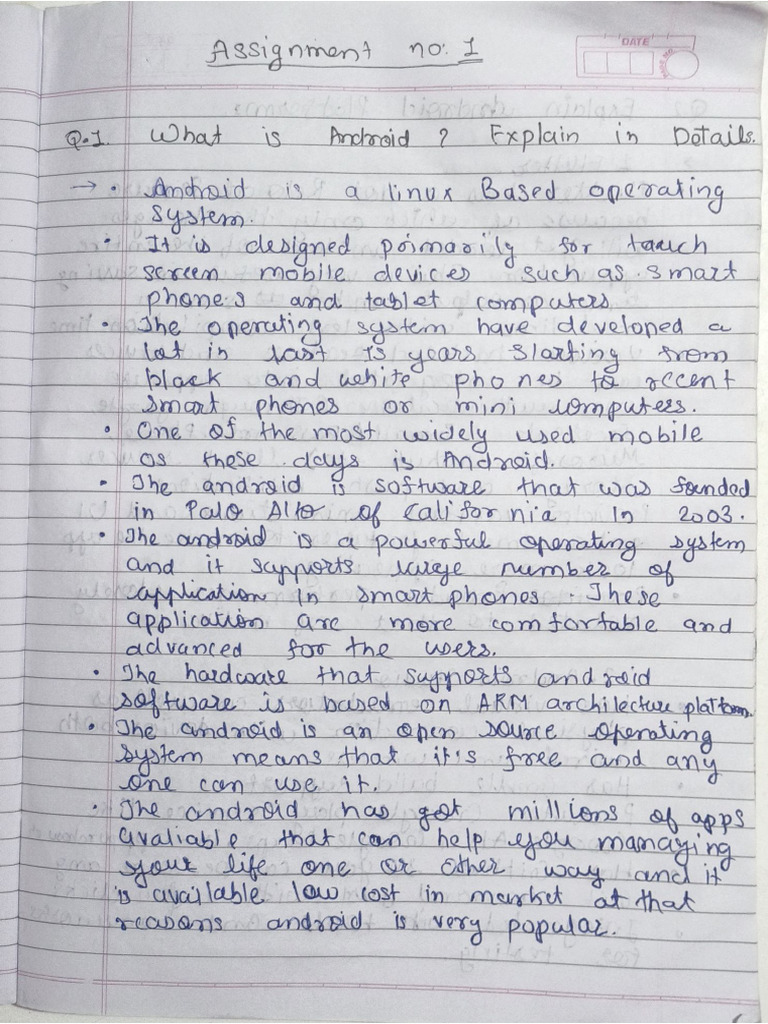 Assignment no: 1
DATE
PAGE NO.
Q.1. What is Android ? Explain in Details.
→ • Android is a linux Based operating
system.
• It is designed primarily for tauch
screen mobile devices such as smart
phones and tablet computers.
• The operating system have developed a
lot in last 15 years starting from
black and white phones to recent
smart phones or mini computers.
• One of the most widely used mobile
os these days is Android.
• The android is software that was founded
in Palo Alto of California in 2003.
• The android is a powerful operating system
and it supports large number of
application in smart phones. These
application are more comfortable and
advanced for the users.
• The hardware that supports android
software is based on ARM architecture platform.
• The android is an open source operating
system means that it's free and any
one can use it.
• The android has got millions of apps
avaliable that can help you managing
your life one or other way and it
is available low cost in market at that
reasons android is very popular.